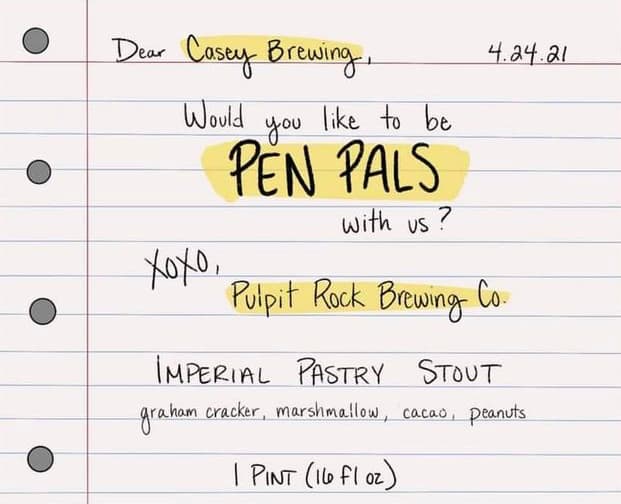 Dear Casey Brewing, 4.24.21
Would you like to be
PEN PALS
with us?
XOXO,
Pulpit Rock Brewing Co.
IMPERIAL PASTRY STOUT
graham cracker, marshmallow, cacao, peanuts
1 PINT (16 fl oz)